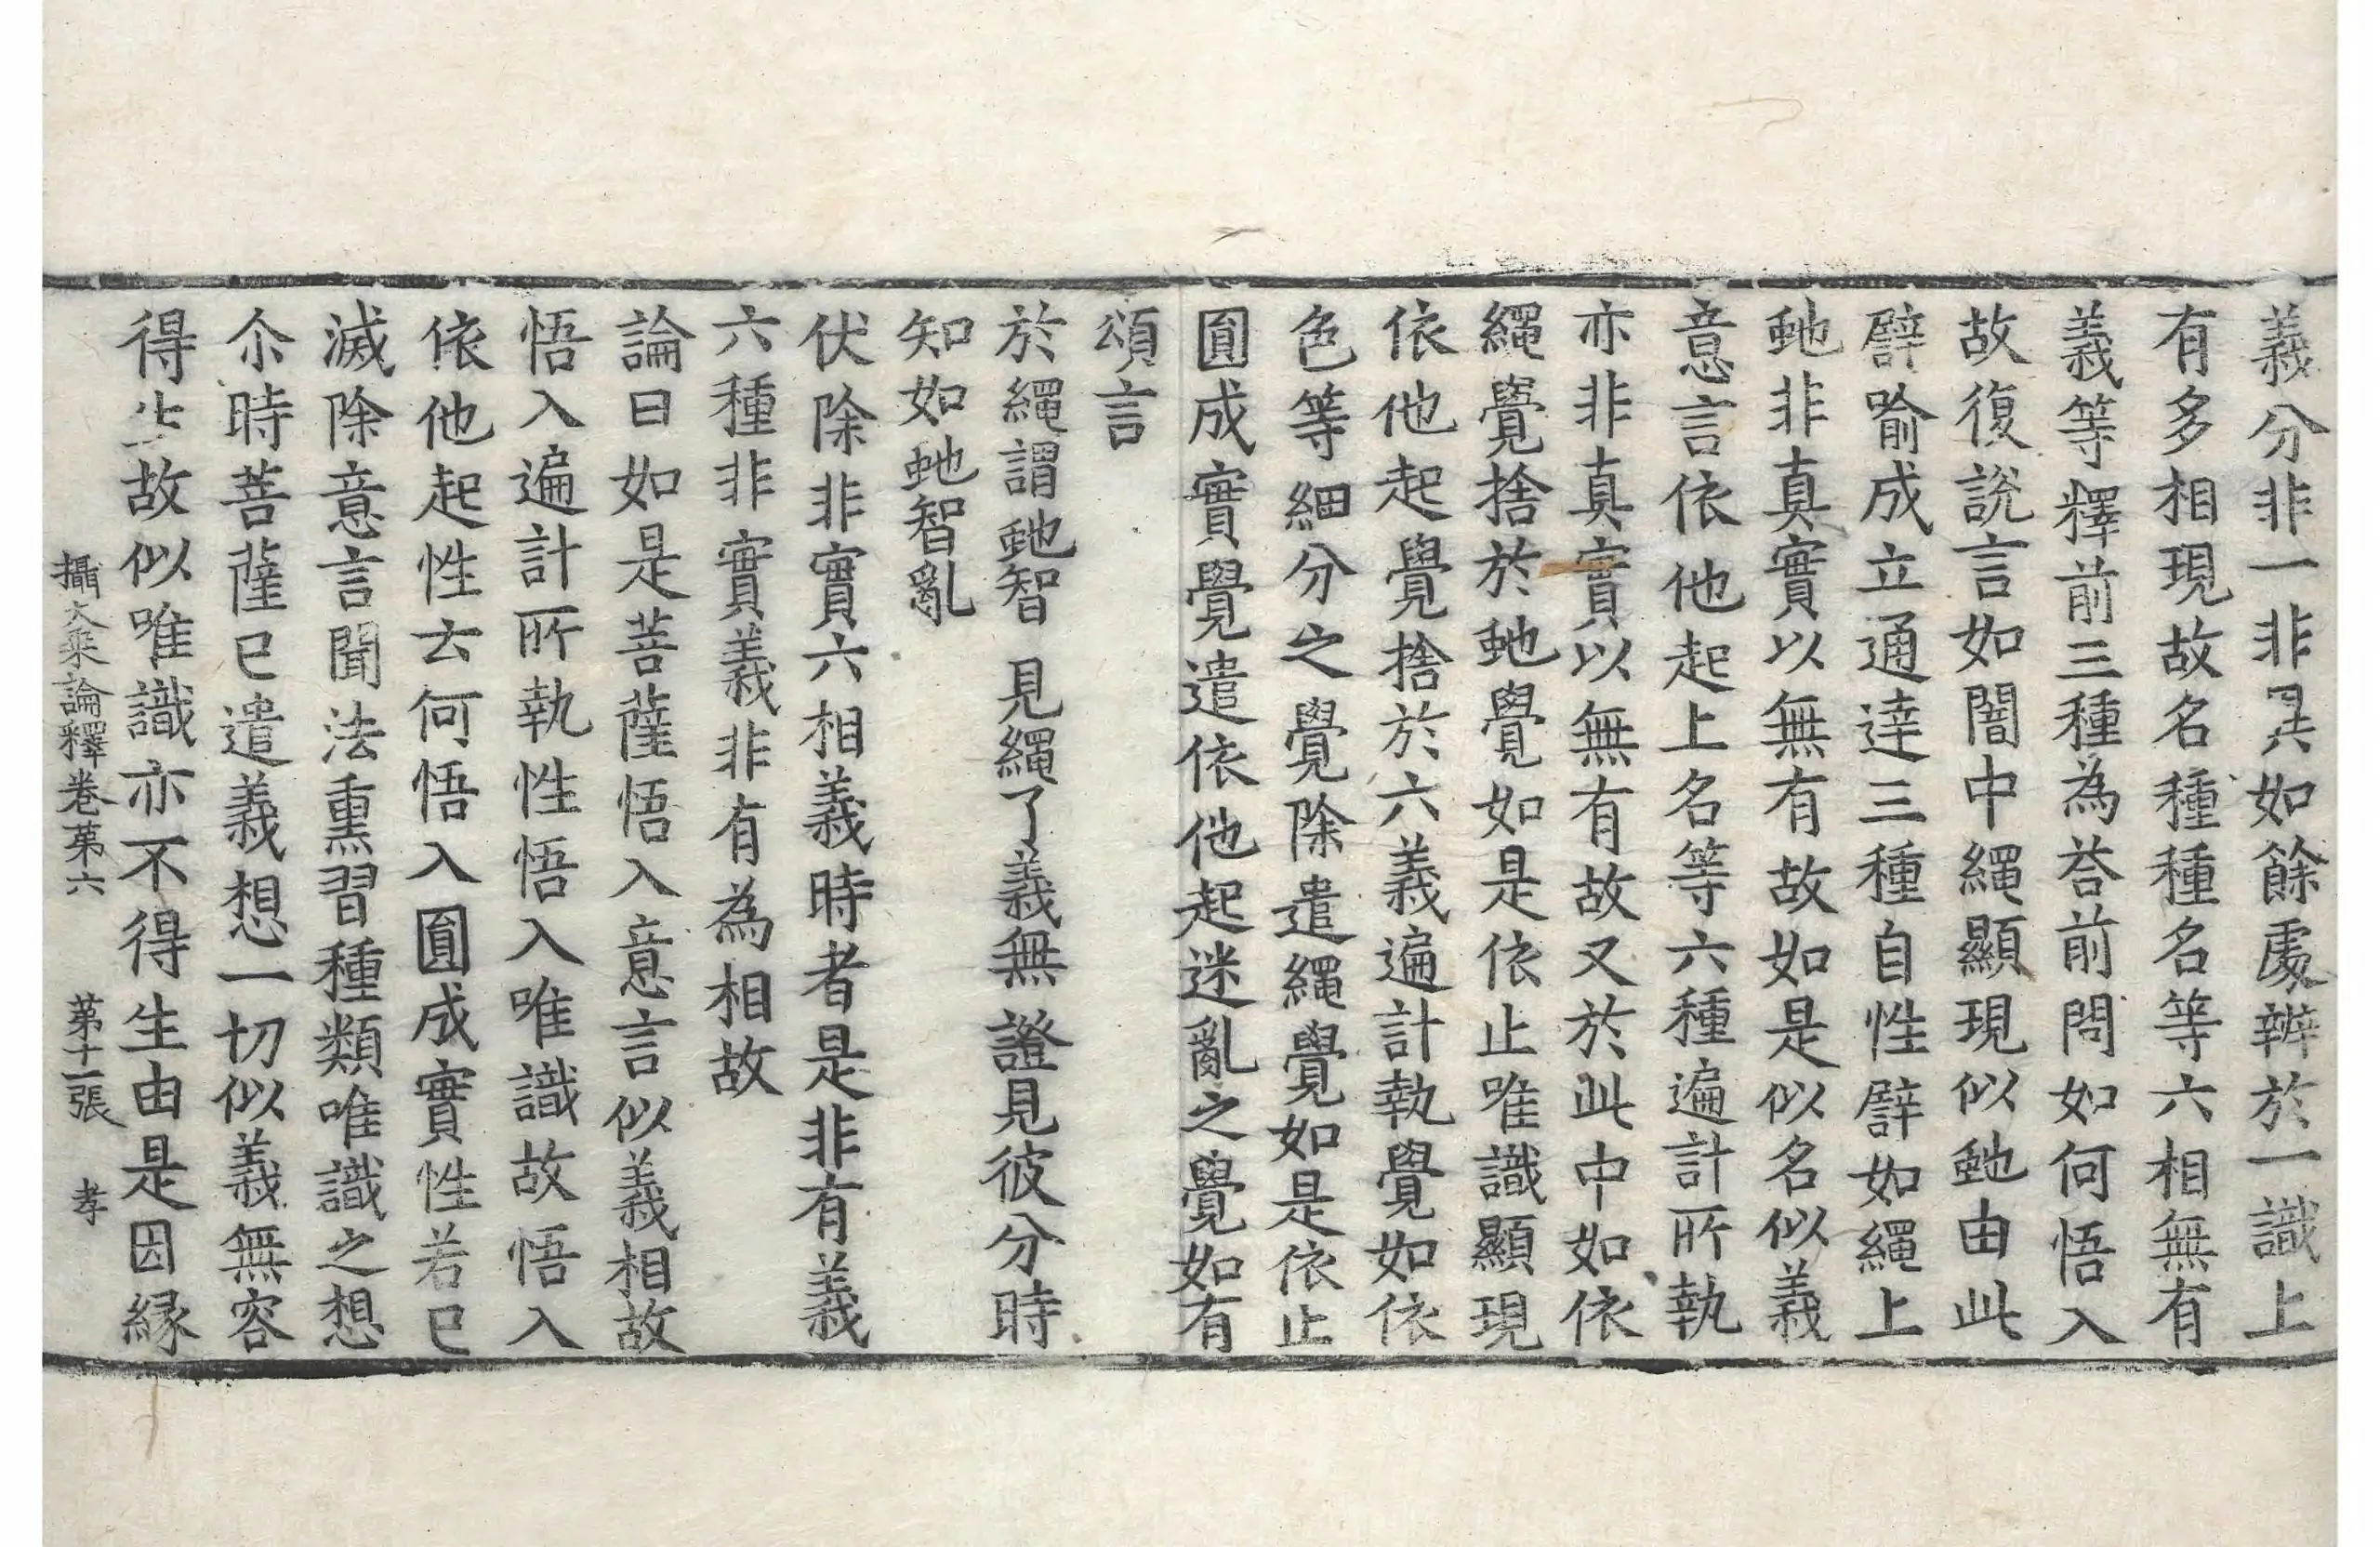 義分非一非異如餘處辨於一識上
有多相現故名種種名等六相無有
義等釋前三種為荅前問如何悟入
故復説言如闇中繩顯現似虵由此
譬喻成立通達三種自性譬如繩上
虵非真實以無有故如是似名似義
意言依他起上名等六種遍計所執
亦非真實以無有故又於此中如依
繩覺捨於虵覺如是依止唯識顯現
依他起覺捨於六義遍計執覺如依
色等細分之覺除遣繩覺如是依止
圓成實覺遣依他起迷亂之覺如有
頌言
於繩謂虵智 見繩了義無 證見彼分時
知如虵智亂
伏除非實六相義時者是非有義
六種非實義非有為相故
論曰如是菩薩悟入意言似義相故
悟入遍計所執性悟入唯識故悟入
依他起性云何悟入圓成實性若已
滅除意言聞法熏習種類唯識之想
尒時菩薩已遣義想一切似義無容
得生故似唯識亦不得生由是因緣
攝大乘論釋卷第六 第十一張 孝